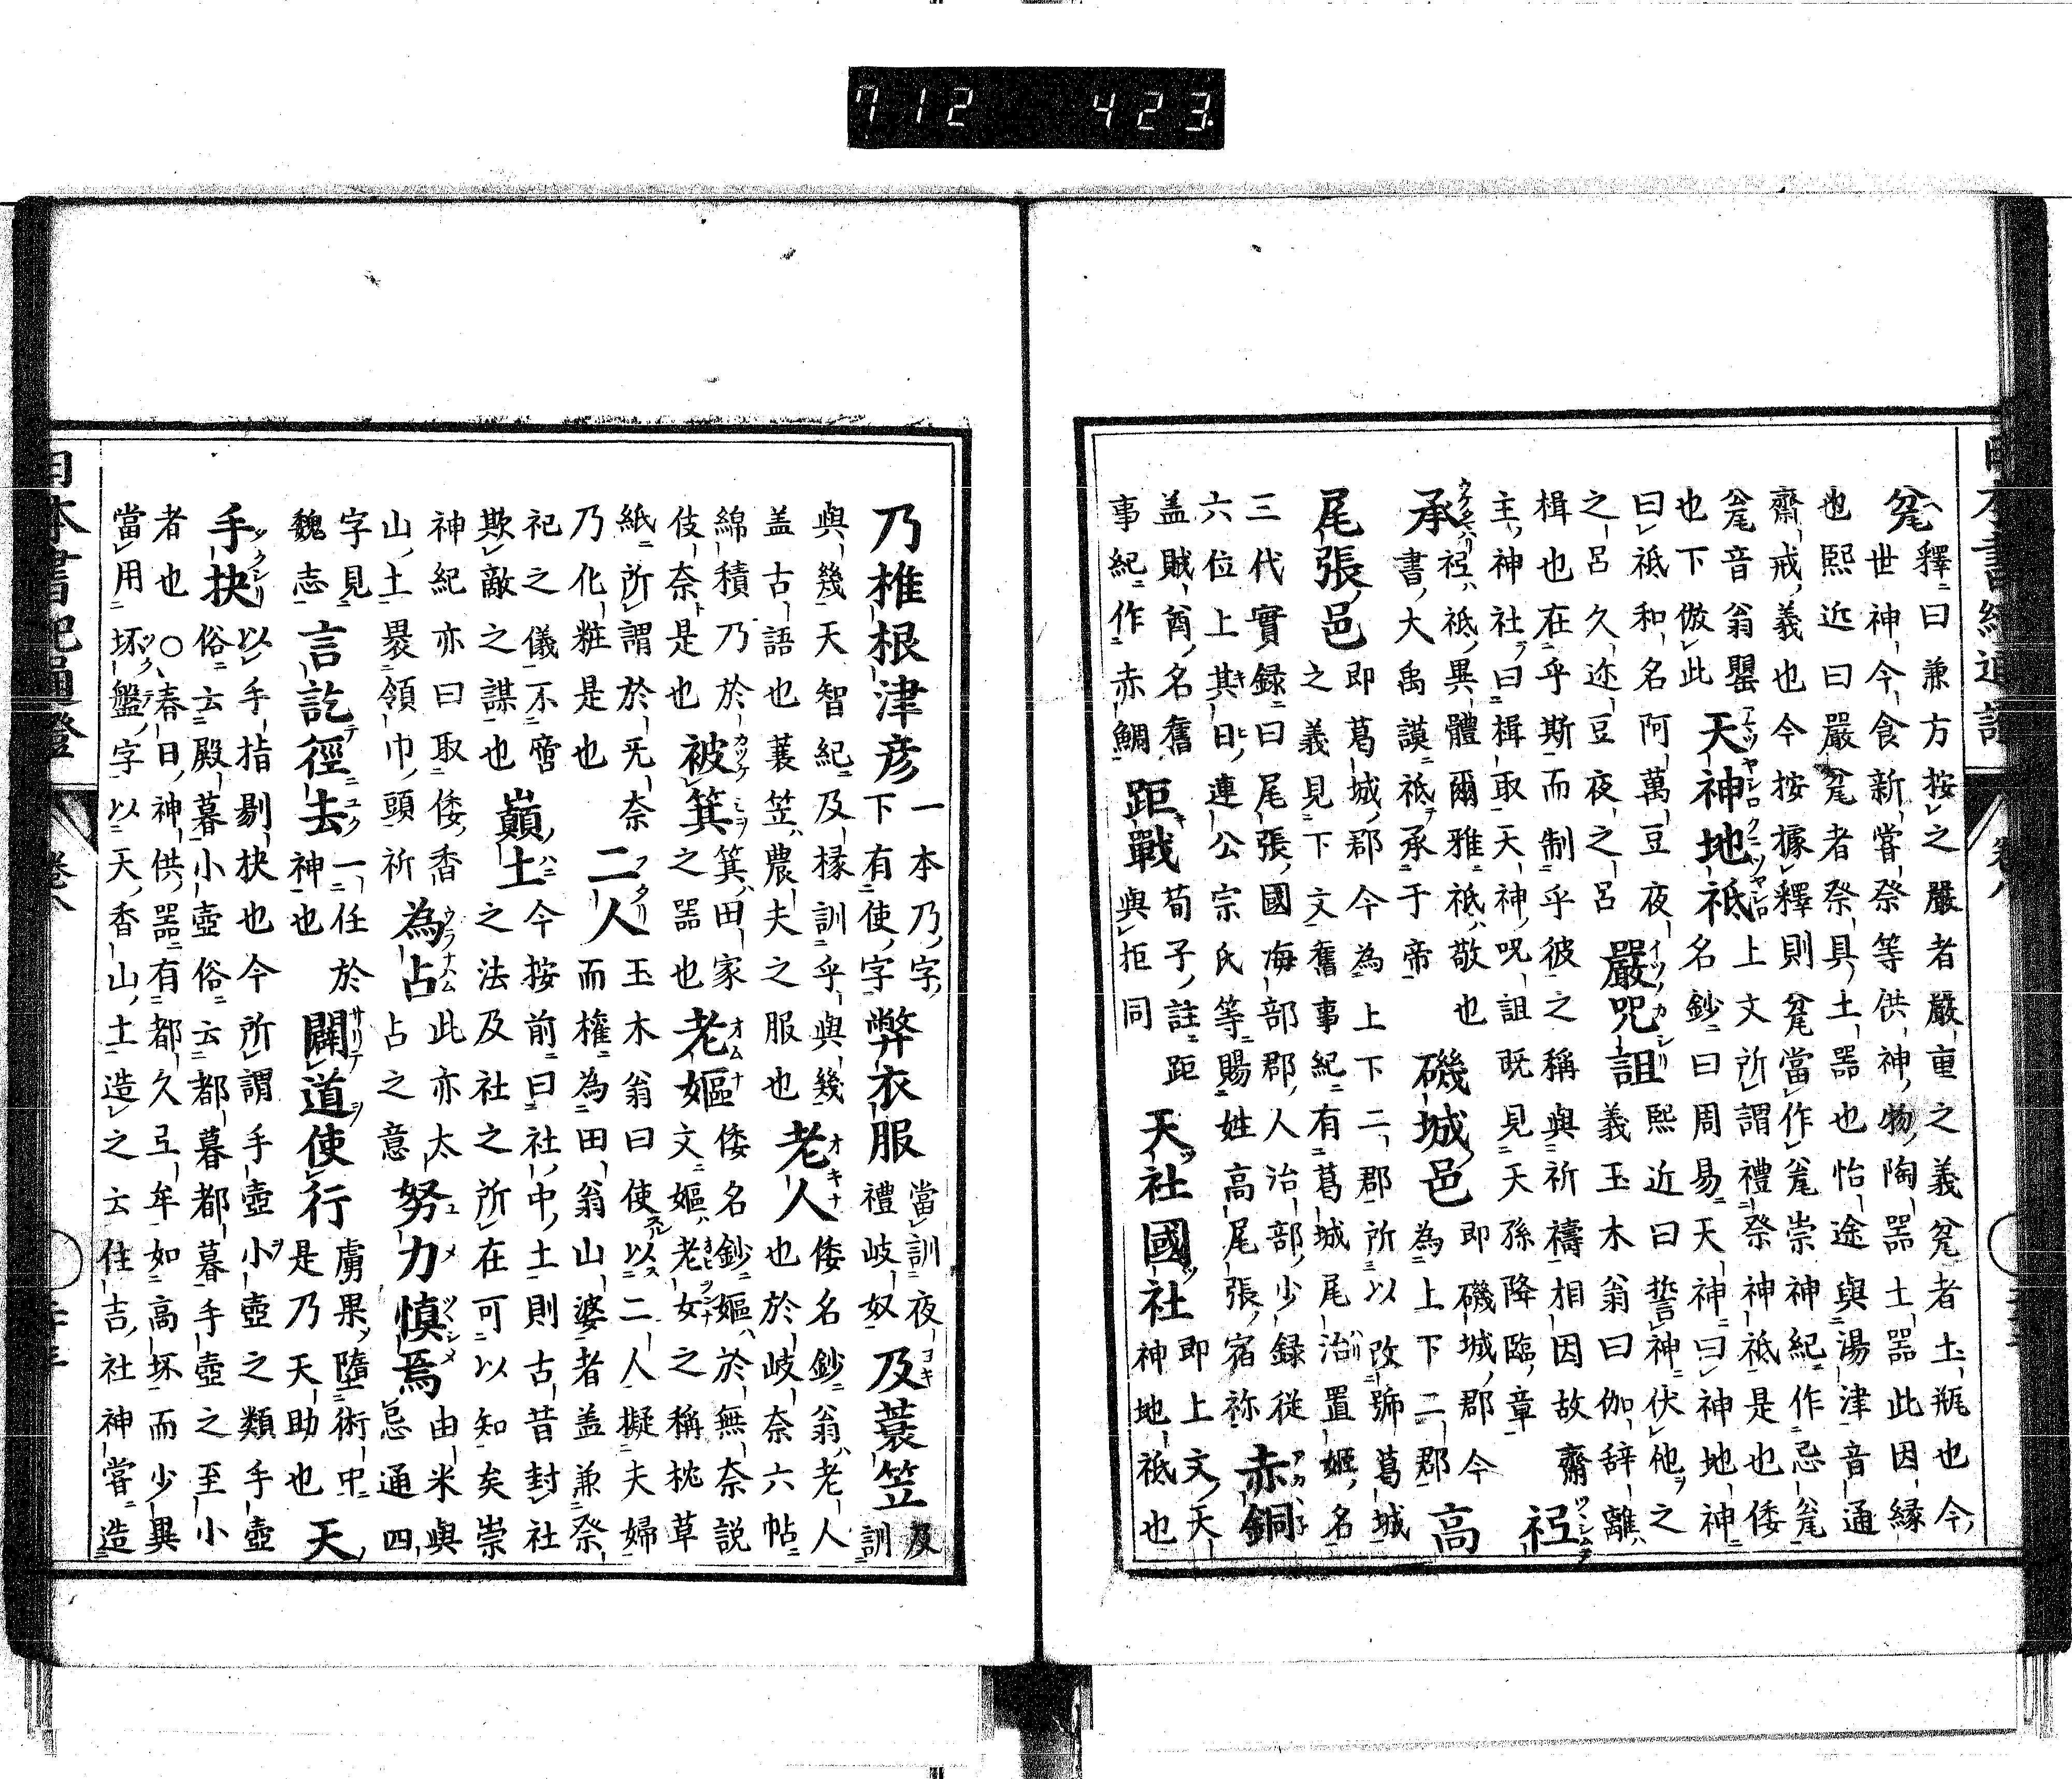 日本書紀通證 卷八
瓫 釋曰兼方按之嚴者嚴重之義瓫者土瓶也今
世神今食新嘗祭等供神物陶器土器此因縁
也熙近曰嚴瓫者祭具土器也怡途與湯津音通
齋戒義也今按據釋則瓫當作瓮崇神紀作忌瓮
瓮音翁罌
也下倣此 天神地祇 上文所謂禮祭神祇是也倭
名鈔曰周易天神曰神地神
曰祇和名阿萬豆夜
之呂久迩豆夜之呂 嚴咒詛 熙近曰誓神伏他之
義玉木翁曰伽辞離
楫也在乎斯而制乎彼之稱與祈禱相因故齋
主神社曰楫取天神咒詛既見天孫降臨章 祗
承 祗祇異體爾雅祗敬也
書大禹謨祗承于帝 磯城邑 即磯城郡今
為上下二郡 高
尾張邑 即葛城郡今為上下二郡所以改號葛城
之義見下文舊事紀有葛城尾治置姬名
三代實録曰尾張國海部郡人治部少録從
六位上其日連公宗氏等賜姓高尾張宿祢 赤銅
盖賊酋名舊
事紀作赤鯛 距戰 荀子註距
與拒同 天社國社 即上文天
神地祇也
乃椎根津彦 一本乃字
下有使字 弊衣服 當訓夜
禮岐奴 及蓑笠 及訓
與幾天智紀及椽訓乎與幾
盖古語也蓑笠農夫之服也 老人 倭名鈔翁老人
也於岐奈六帖
綿積乃於
伎奈是也 被箕 箕田家
之器也 老嫗 倭名鈔嫗於無奈説
文嫗老女之稱枕草
紙所謂於旡奈
乃化粧是也 二人 玉木翁曰使以二人擬夫婦
而權為田翁山婆者盖兼祭
祀之儀不啻
欺敵之謀也 巓土 今按前曰社中土則古昔封社
之法及社之所在可以知矣崇
神紀亦曰取倭香
山土裹領巾頭祈 為占 此亦太
占之意 努力慎焉 由米與
忌通四
字見
魏志 言訖徑去 一任於
神也 闢道使行 虜果墮術中
是乃天助也 天
手抉 以手指剔抉也今所謂手壺小壺之類手壺
俗云殿暮小壺俗云都暮都暮手壺之至小
者也〇春日神供器有都久弖牟如高坏而少異
當用坏盤字以天香山土造之云住吉社神嘗造
日本書紀通證 卷八
712 423